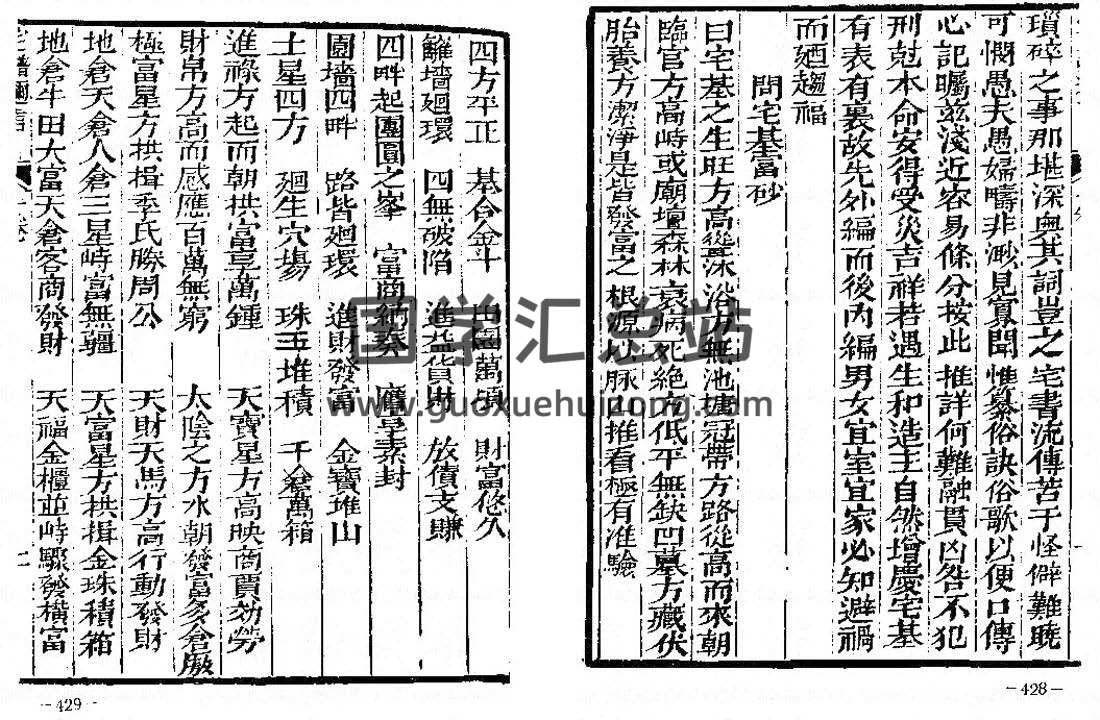 瑣碎之事那堪深奧其詞豈之宅書流傳苦于怪僻難曉
可憫愚夫愚婦疇非渺見寡聞惟纂俗訣俗歌以便口傳
心記矚茲淺近容易條分按此推詳何難融貫凶咎不犯
刑尅本命安得受災吉祥若遇生和造主自然增慶宅基
有表有裏故先外編而後內編男女宜室宜家必知避禍
而廻趨福
問宅基富砂
曰宅基之生旺方高聳沐浴方無池塘冠帶方路從高而來朝
臨官方高峙或廟壇森林衰病死絕方低平無缺凹墓方藏伏
胎養方潔淨是皆發富之根源以脉山推看極有准驗
-428-
四方平正 基合金斗 田園萬頃 財富悠久
籬墻廻環 四無破陷 進益貨財 放債支賺
四畔起團圓之峯 富商納奏 應享素封
圍墻四畔 路皆廻環 進財發富 金寶堆山
土星四方 廻生穴塲 珠玉堆積 千倉萬箱
進祿方起而朝拱富享萬鍾 天寶星方高映商賈効勞
財帛方高而感應百萬無窮 太陰之方水朝發富多倉廒
極富星方拱揖季氏勝周公 天財天馬方高行動發財
地倉天倉人倉三星峙富無疆 天富星方拱揖金珠積箱
地倉牛田大富天倉客商發財 天福金櫃並峙驟發橫富
-429-
国学汇宗站
www.guoxuehuizong.com